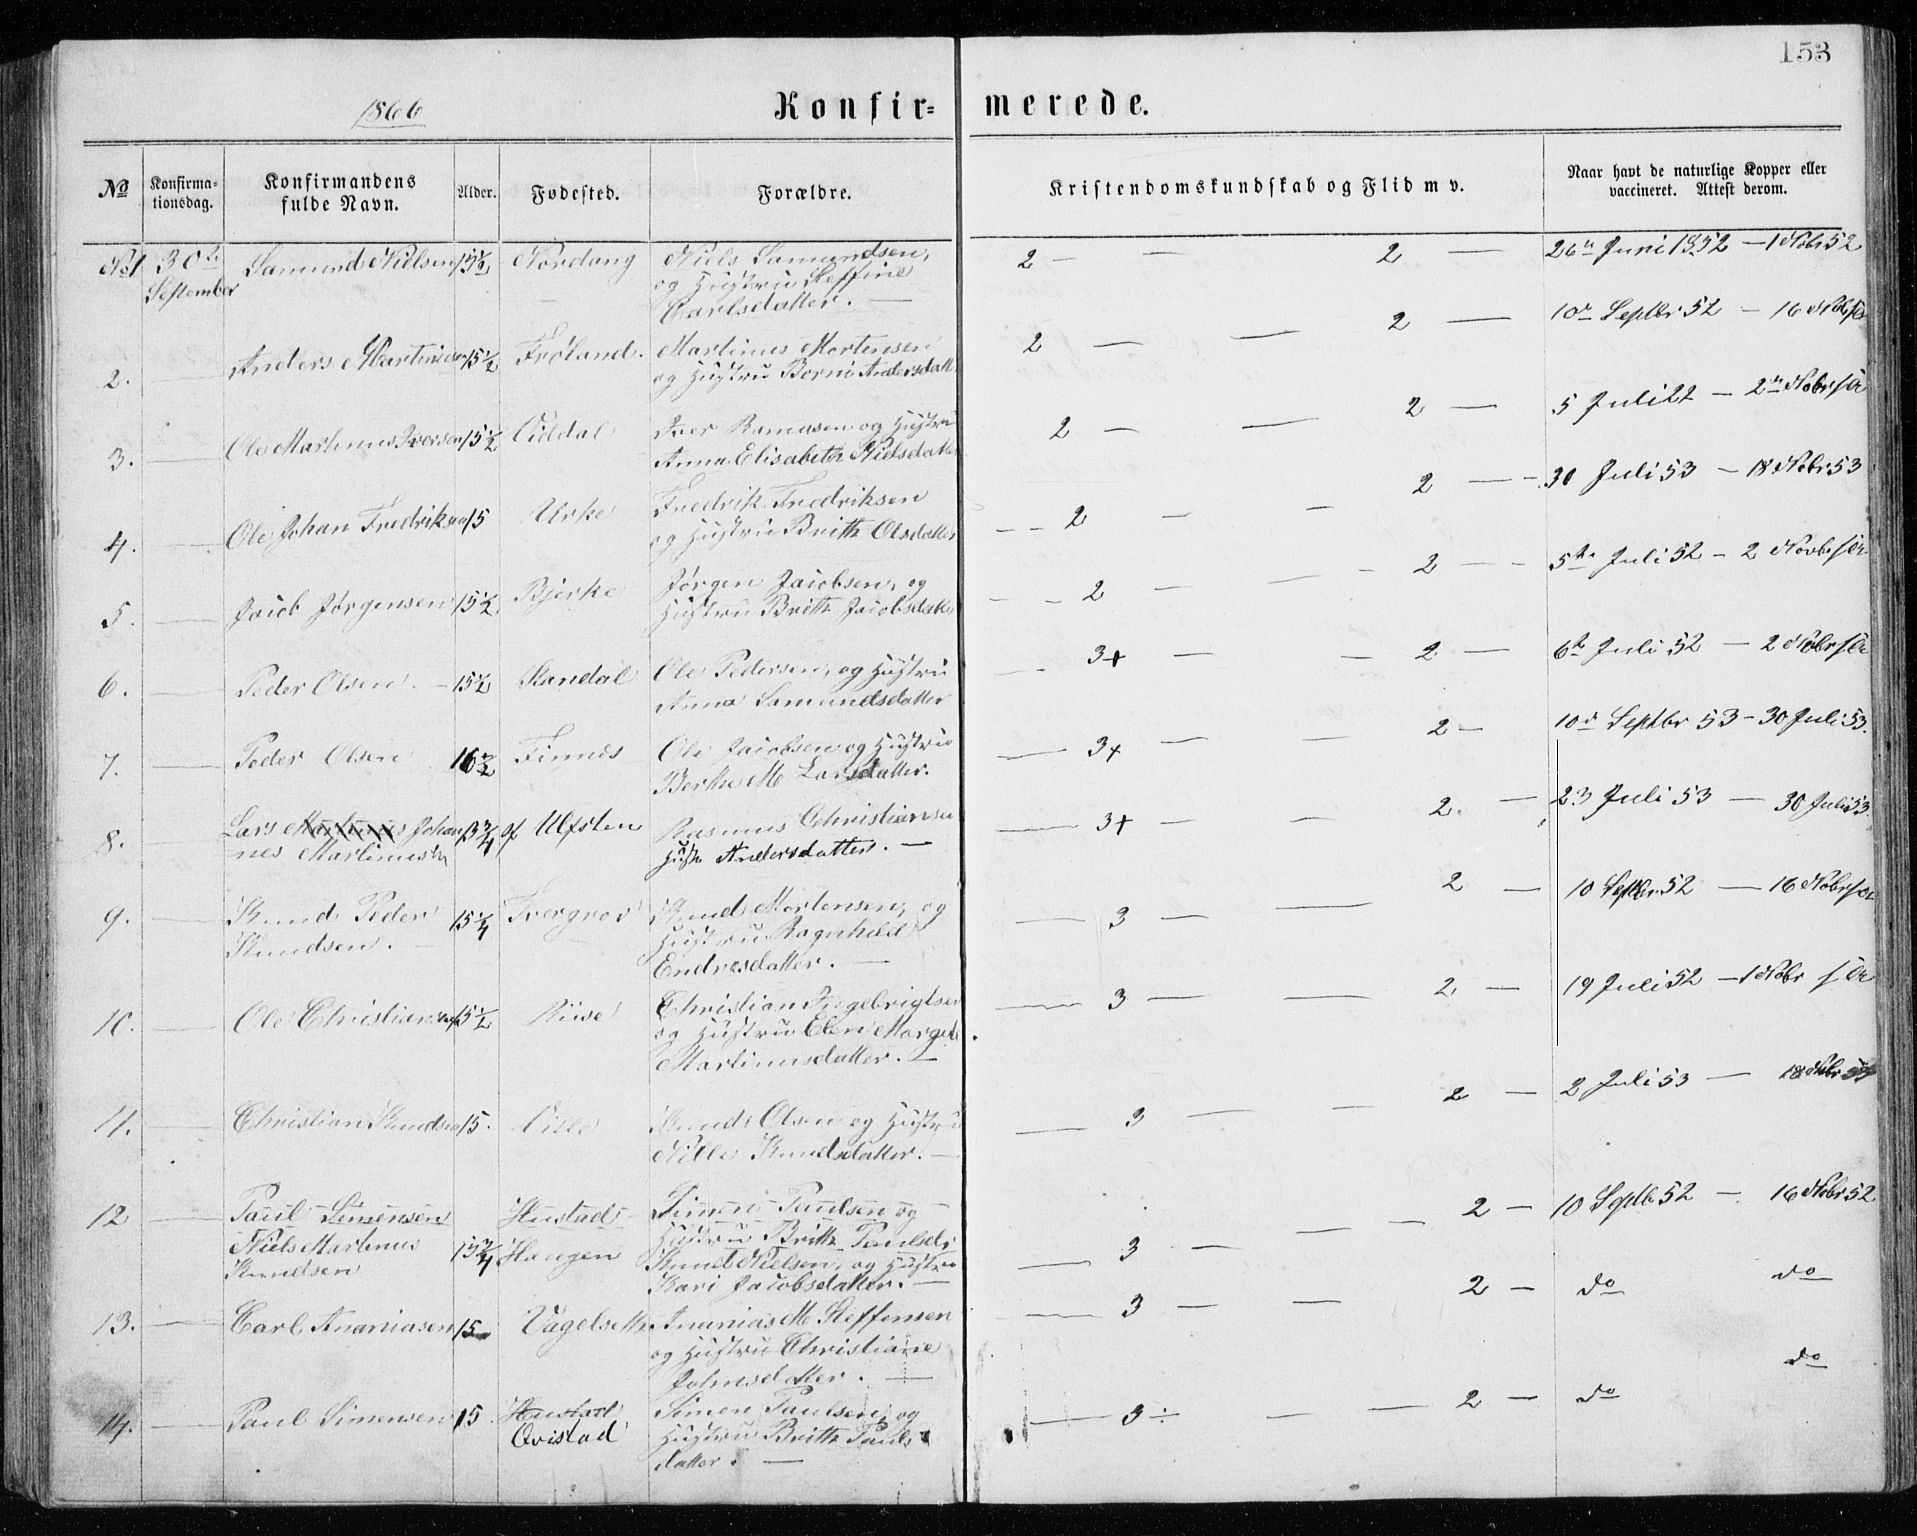 153
1866
Konfir= merede.
No
Konfirma=
tionsdag.
Konfirmandens
fulde Navn.
Alder.
Fødested.
Forældre.
Kristendomskundskab og Flid m v.
Naar havt de naturlige Kopper eller
vaccineret. Attest derom.
No 1 30te Samund Nielsen 15½ Nordang Niels Samundsen, 2 — 2 — 26de Juni 1852 — 1 Nobr 52
September og Hustru Steffine
Carlsdatter. —
2. — Anders Martinusen 15½ Frøland. Martinus Mortensen 2 — — 2 — 10de Septbr 52 — 16 Nobr
og Hustru Berni Andersdatt
3. — Ole Martinus Iversen 15½ Uddal Iver Ramusen og Hustru 2 — — 2 — 5 Juli — 2den Nobr
Anna Elisabeth Nielsdatter
4. — Ole Johan Fredriksen 15 Urke Fredrik Fredriksen 2 — — 2 — 30 Juli 53 — 18 Nobr 53
og Hustru Brith Olsdatter
5. — Jacob Jørgensen 15½ Bjerke Jørgen Jacobsen, og 2 — — 2 — 5te Juli 52 — 2 Novbr
Hustru Brith Jacobsdatt
6. — Peder Olsen — 15½ Skandal Ole Pedersen, og Hustru 3+ — — 2 — 6te Juli 52 — 2 Nobr
Anna Samundsdatter
7. — Peder Olsen 16½ Finnes Ole Jacobsen og Hustru 3+ — — 2 — 10de Septbr 53 — 30 Juli 53.
Berthe M Larsdatter.
8. — Lars Martinus Johan Ulfsten Rasmus Christiansen 3+ — — 2. — 23 Juli 53 — 30 Juli 53.
nes Martinus
Hust Andersdatter. —
9. — Knud Peder 15¼ Tvergrov Knud Mortensen, og 3 — — 2 — 10 Septbr 52 — 16 Nobr
Knudsen. Hustru Ragnhild
Endresdatter. —
10. — Ole Christiansen 15½ Riise Christian Ingebrigtsen 3 — — 2 — 19 Juli 52 — 1 Nobr
og Hustru Elen Margete
Martinusdatter. —
11. — Christian Knudsen 15. Knud Olsen og Hustru 3 — — 2 — 2 Juli 53 — 18 Nobr 53
Nille Knudsdatter. —
12 — Paul Simensen Hustad Simen Paulsen og 3 — — 2 — 10 Septb 52 — 16 Nobr 52
Hustru Brith Paulsd:
Niels Martinus Haugen Knud Nielsen, og Hustru
Knudsen Kari Jacobsdatter. —
13. — Carl Ananiasen 15 Vagelseth Ananias M Steffensen 3 — — 2 — do do
og Hustru Christiane
Johnsdatter. —
14. — Paul Simensen 15 Hustad Simen Paulsen, og 3÷ — — 2 — do do
Qvistad Hustru Brith Pauls
datter. —